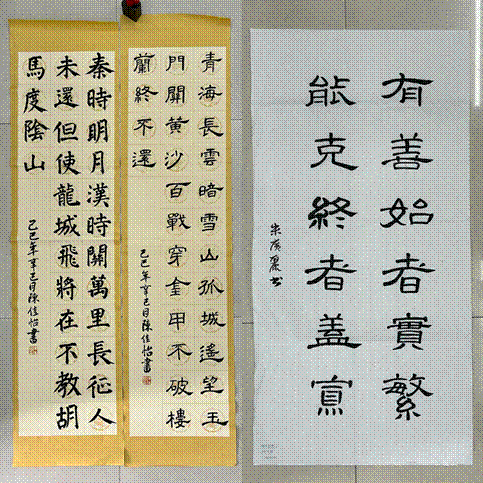 有善始者實繁
能克終者蓋寡
青海長雲暗雪山孤城遙望玉
門關黃沙百戰穿金甲不破樓
蘭終不還
乙巳年辛巳月陳佳怡書
秦時明月漢時關萬里長征人
未還但使龍城飛將在不教胡
馬度陰山
乙巳年辛巳月陳佳怡書